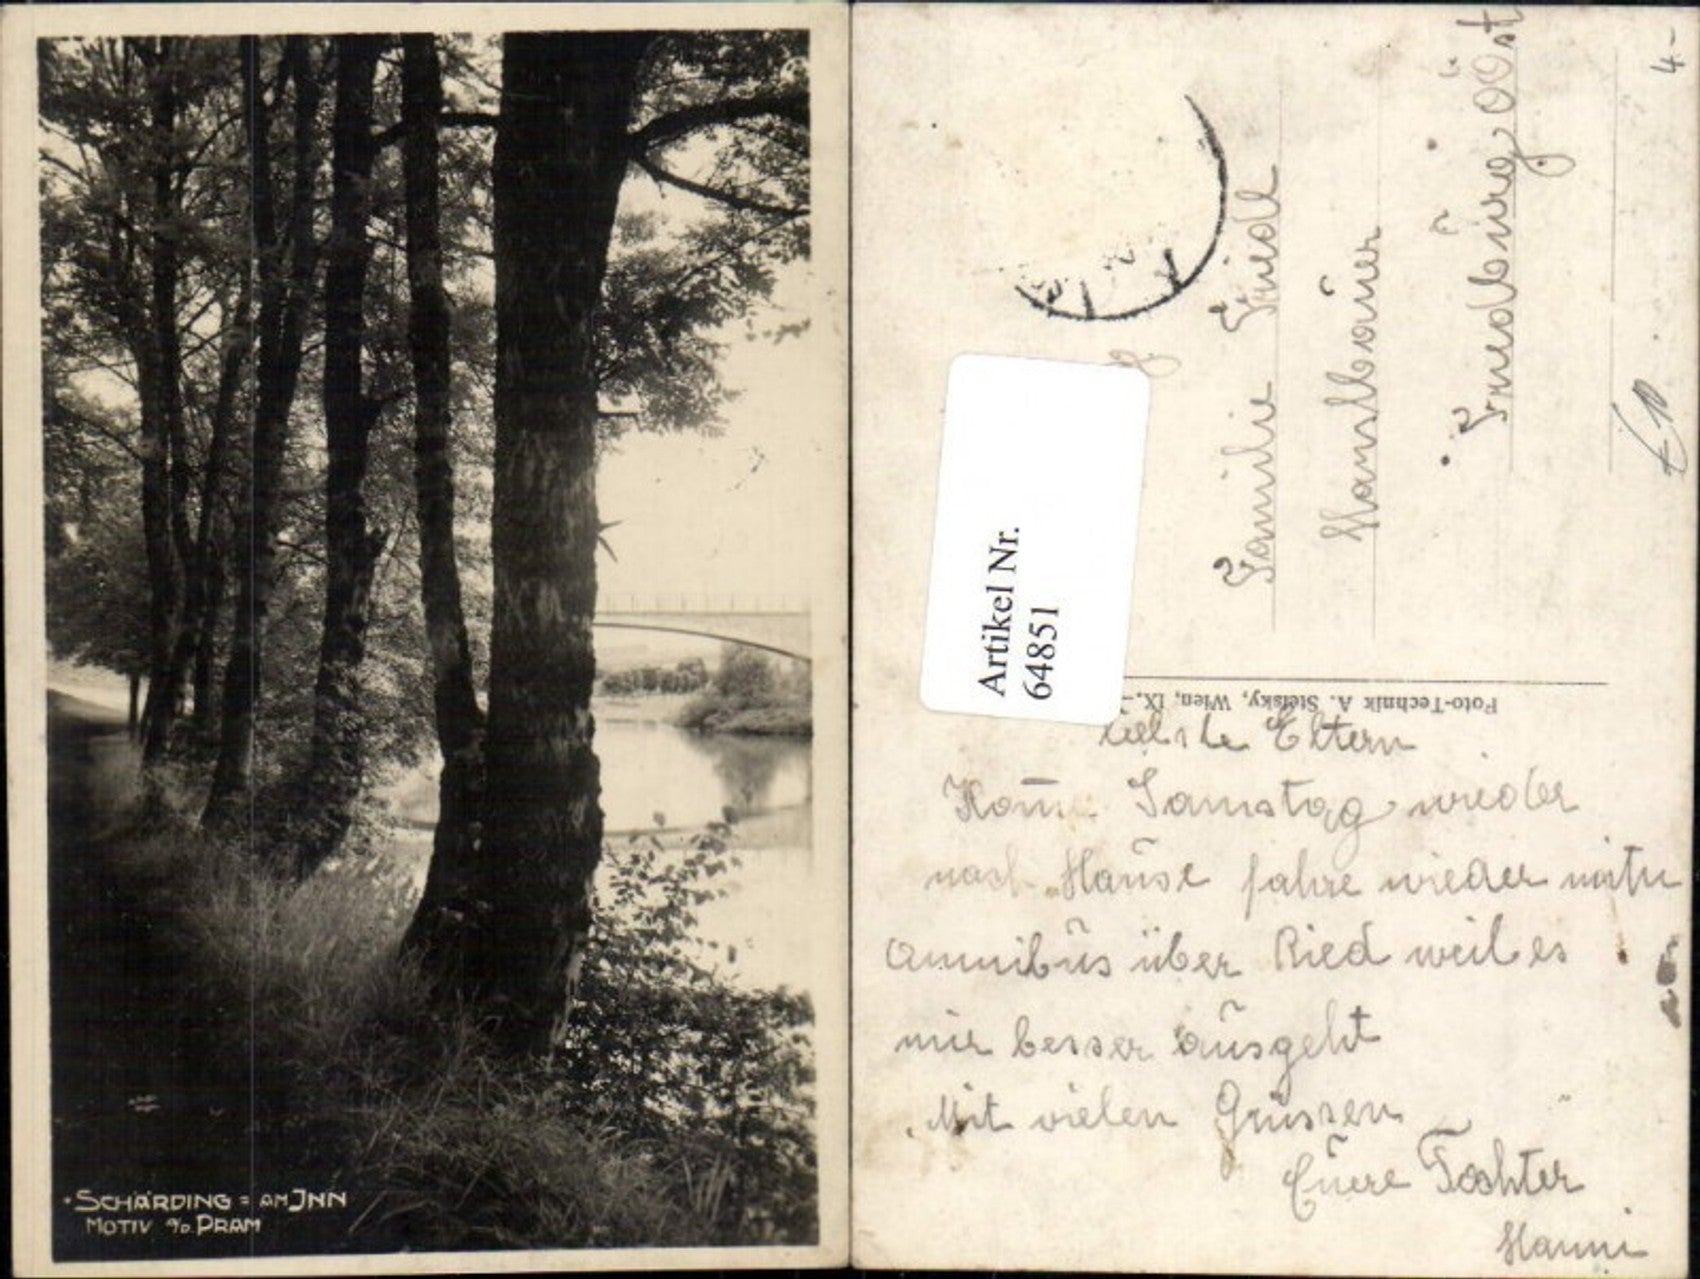 SCHÄRDING = AM INN
MOTIV a/D. PRAM
Artikel Nr.
64851
4-
€10
Familie Friedl
Hanslbauer
Friedburg OÖst
Foto-Technik A. Stefsky, Wien, IX.
Liebste Eltern
Komme Samstag wieder
nach Hause fahre wieder mitn
Omnibus über Ried weil es
mir besser ausgeht
Mit vielen Grüssen
Euere Tochter
Hanni